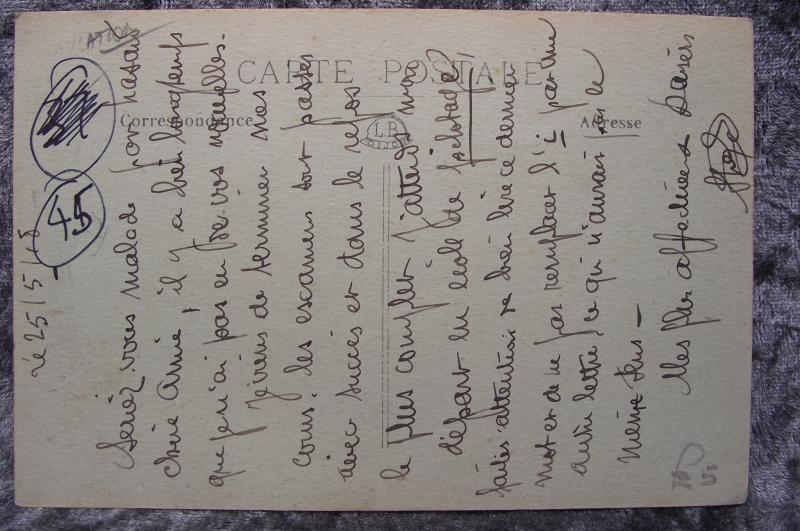 CARTE POSTALE
Correspondance
Adresse
L.B.
DIJON
le 25/5/18
45
Seriez vous malade par hasard
chère Amie, il y a bien longtemps
que je n'ai pas eu de vos nouvelles.
Je viens de terminer mes
cours, les examens sont passés
avec succès et dans le repos
le plus complet j'attends mon
départ en école de pilotage,
faites attention de bien lire ce dernier
mot et de ne pas remplacer l'i par une
autre lettre, ce qui n'aurait pas le
même sens —
Mes plus affectueux baisers